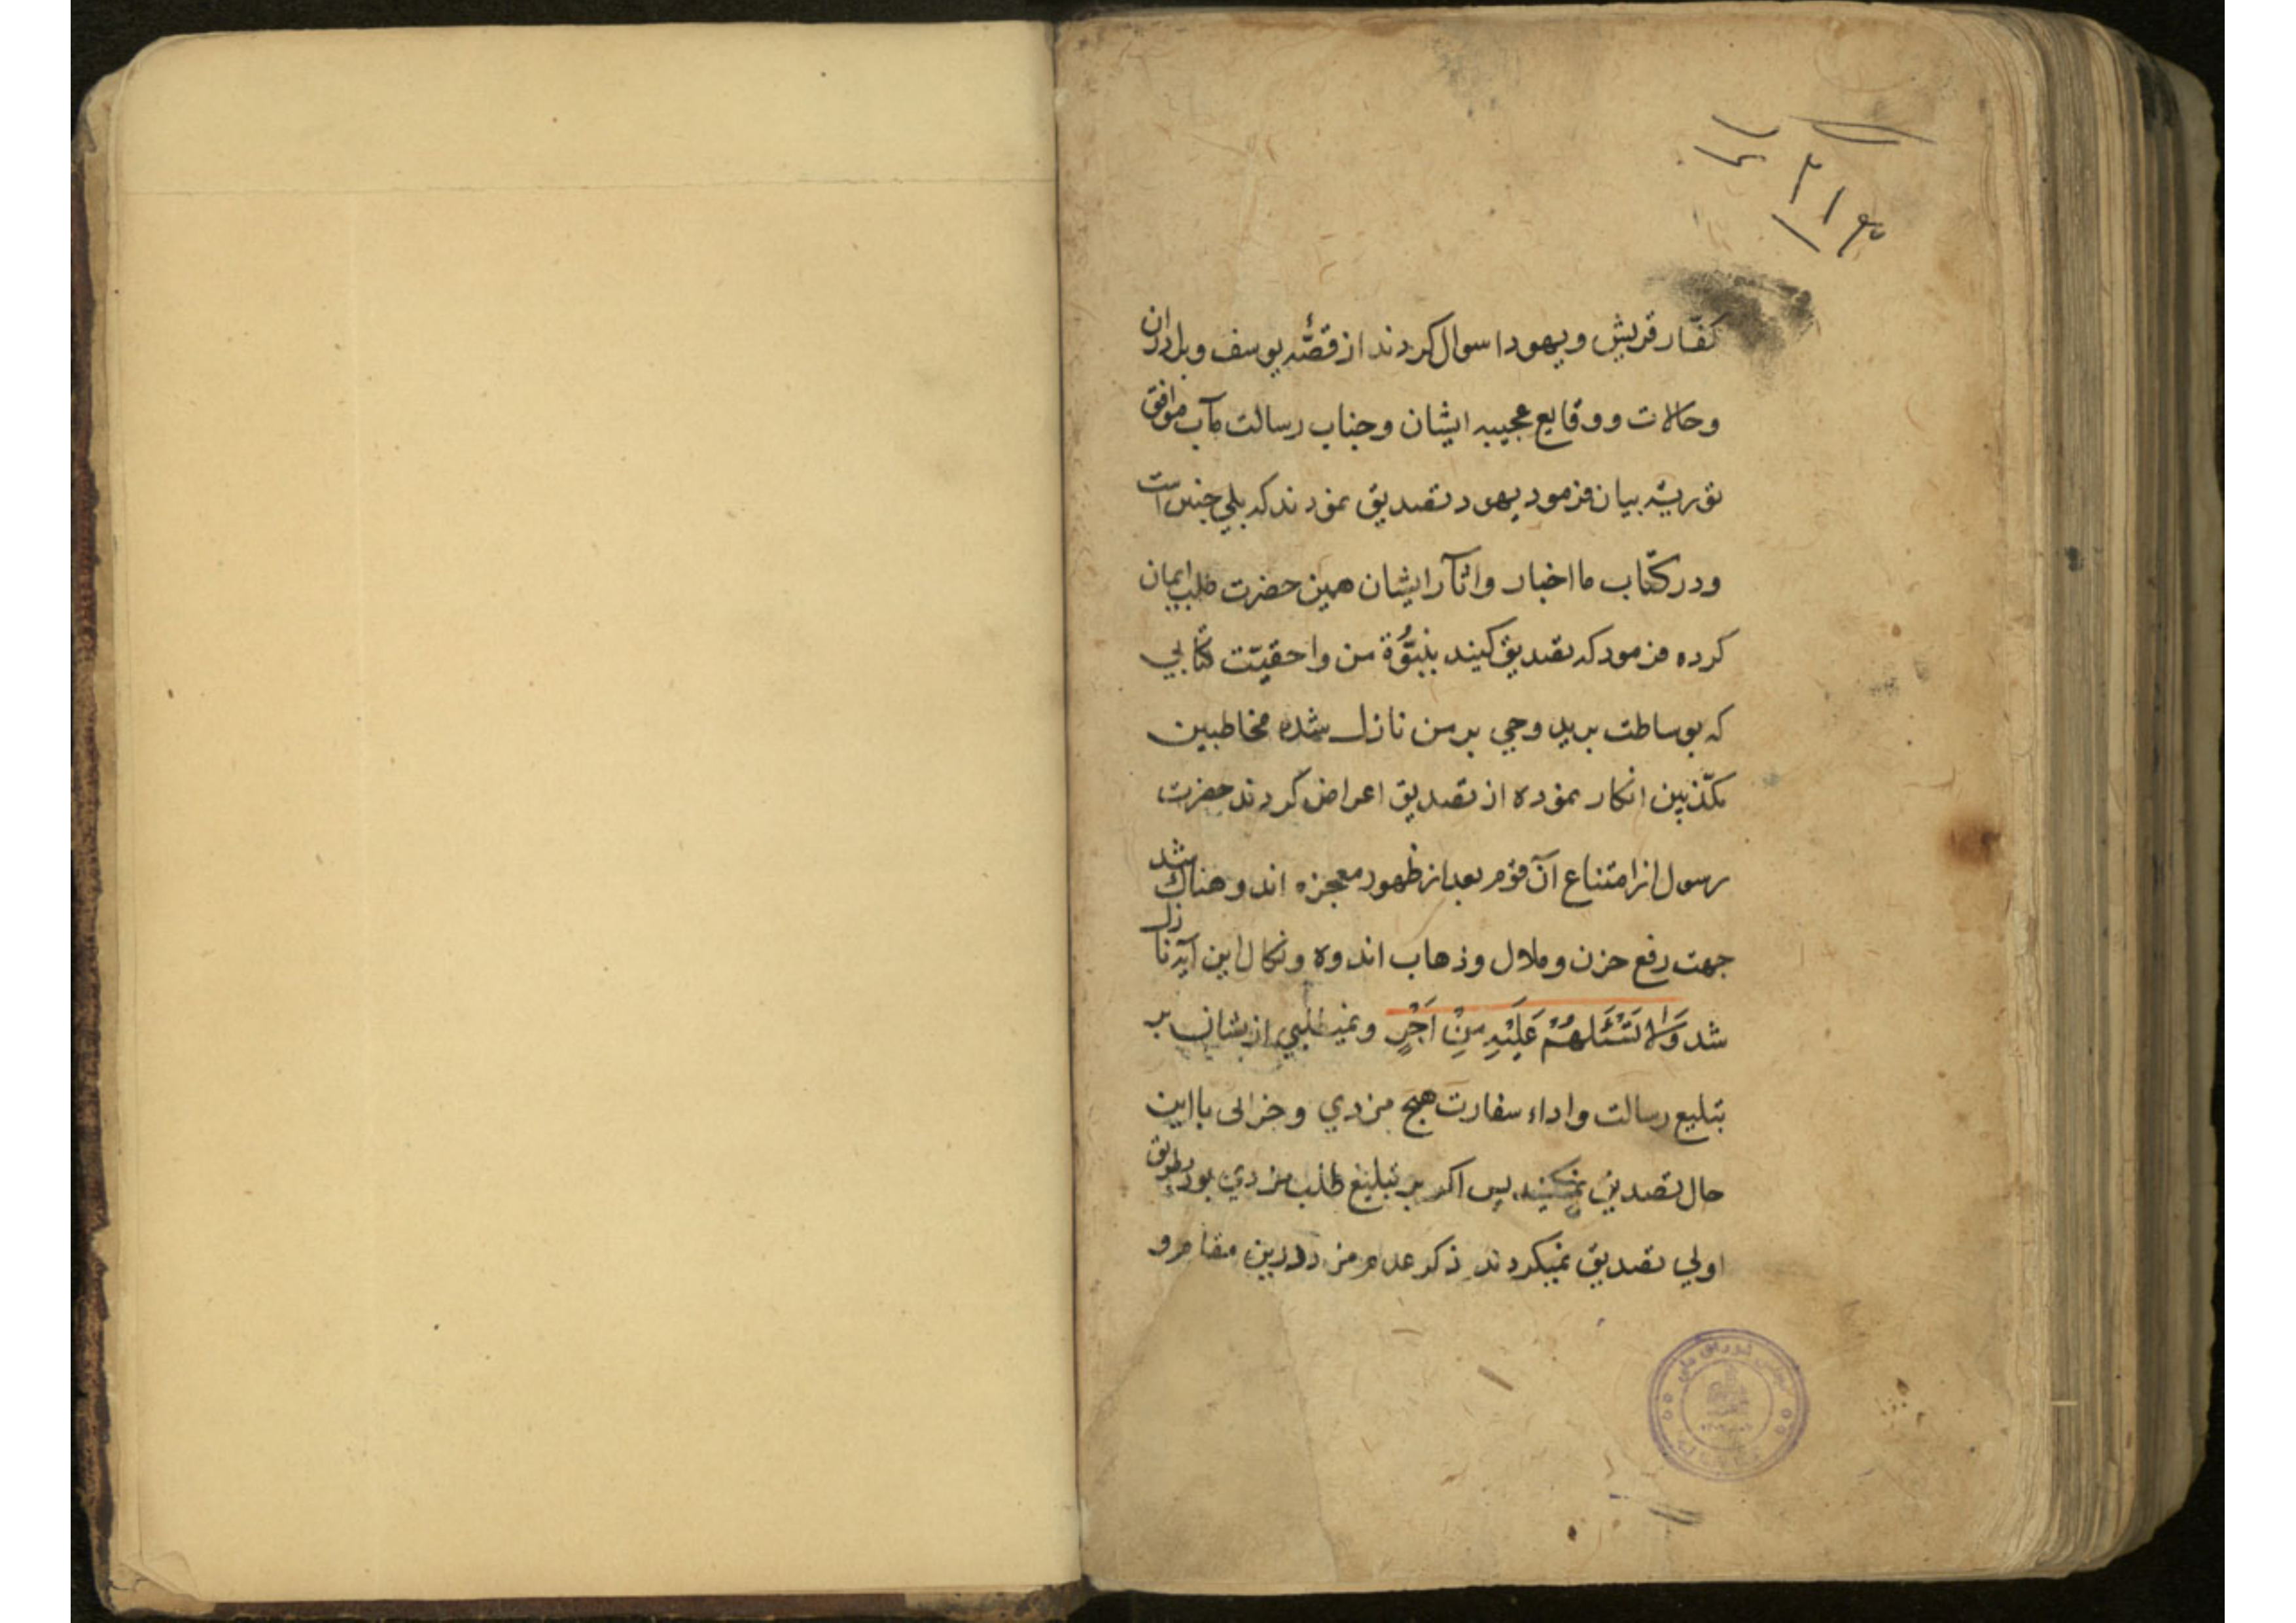 ۲۱۴
کفّار قریش و یهودا سوال کردند از قصّهٔ یوسف و برادران
و حالات و وقایع عجیبه ایشان و جناب رسالت مآب موافق
توریة بیان فرمود یهود تصدیق نمودند که بلی چنین است
و در کتاب ما اخبار و اثار ایشان همین حضرت طلب ایمان
کرده فرمود که تصدیق کنید بنبوّة من و احقیّت کتابی
که بوساطت برید وحی بر من نازل شده مخاطبین
مکذّبین انکار نموده از تصدیق اعراض کردند حضرت
رسول از امتناع آن قوم بعد از ظهور معجزه اندوهناک شد
جهت رفع حزن و ملال و ذهاب اندوه و نکال این آیه نازل
شد وَلا تَسْئَلهُمْ عَلَیْهِ مِنْ اَجْرٍ و نمیطلبی ازیشان بر
تبلیغ رسالت و اداء سفارت هیچ مزدی و جزائی با این
حال تصدیق نمیکنند پس اکر بر تبلیغ طلب مزدی بود بطریق
اولی تصدیق نمیکردند ذکر عدم مزد درین مقام و